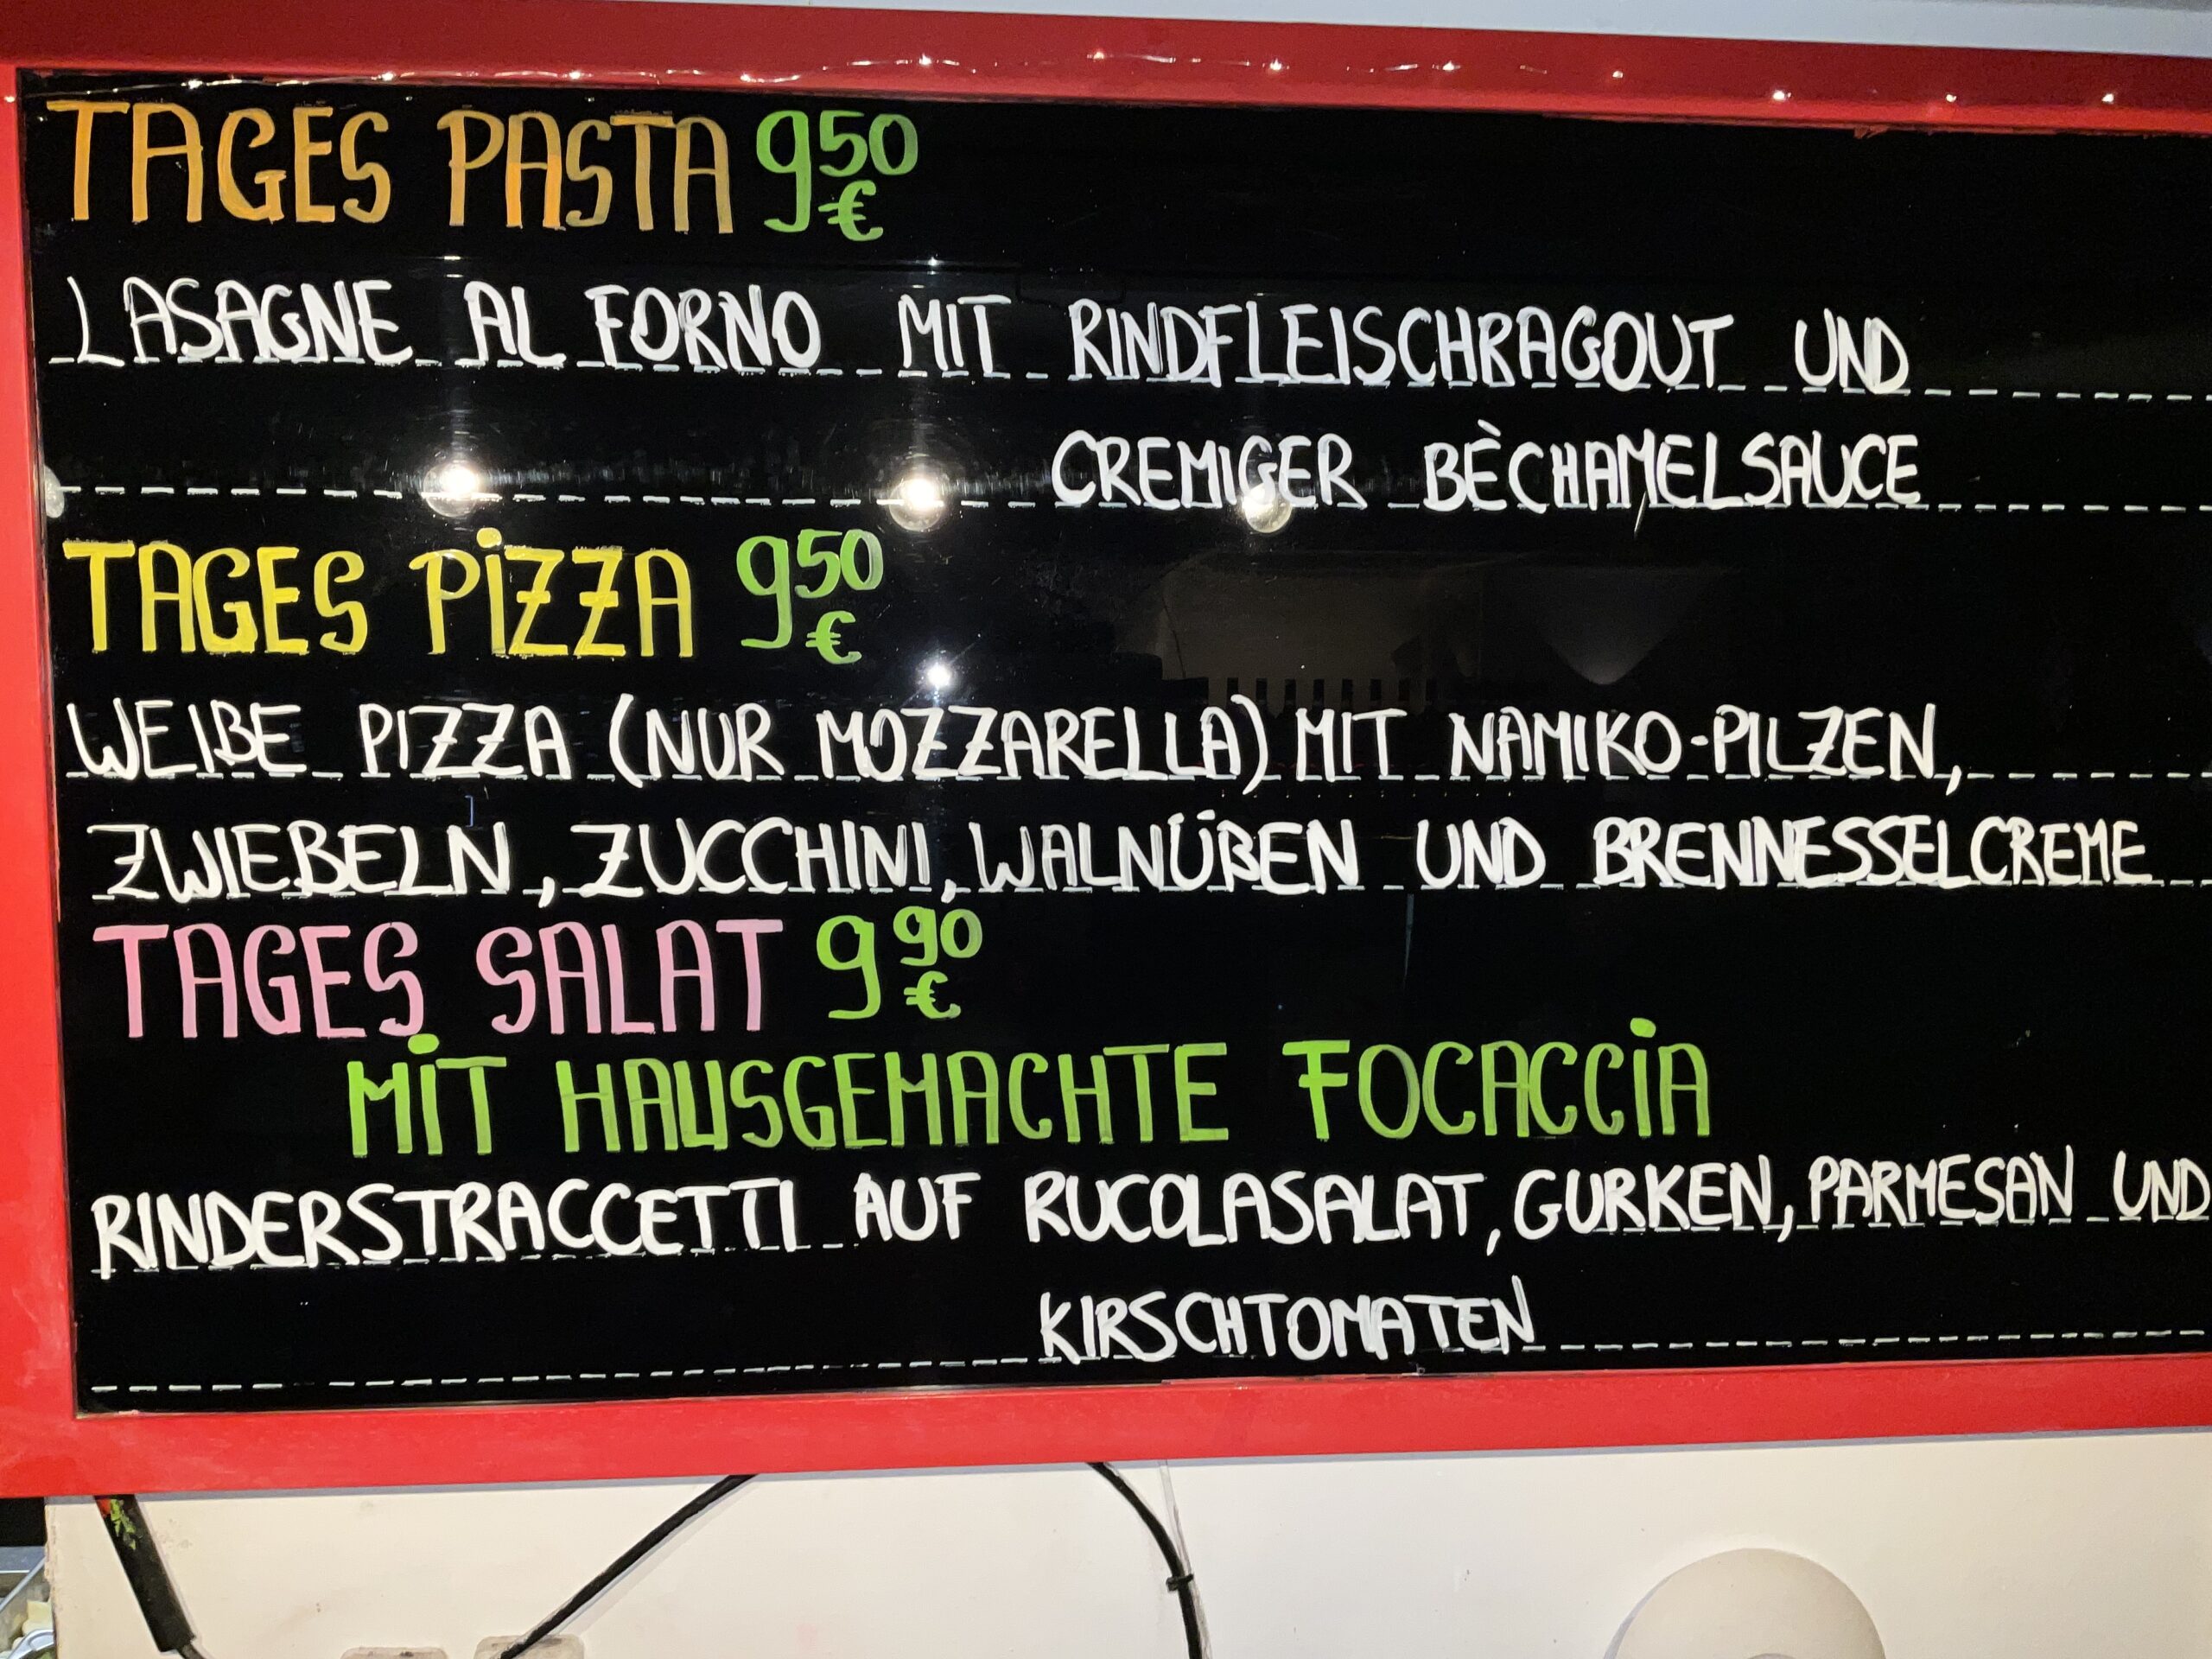 TAGES PASTA 9,50 €
LASAGNE AL FORNO MIT RINDFLEISCHRAGOUT UND
CREMIGER BÈCHAMELSAUCE
TAGES PIZZA 9,50 €
WEIßE PIZZA (NUR MOZZARELLA) MIT NAMIKO-PILZEN,
ZWIEBELN, ZUCCHINI, WALNÜßEN UND BRENNESSELCREME
TAGES SALAT 9,90 €
MIT HAUSGEMACHTE FOCACCIA
RINDERSTRACCETTI AUF RUCOLASALAT, GURKEN, PARMESAN UND
KIRSCHTOMATEN